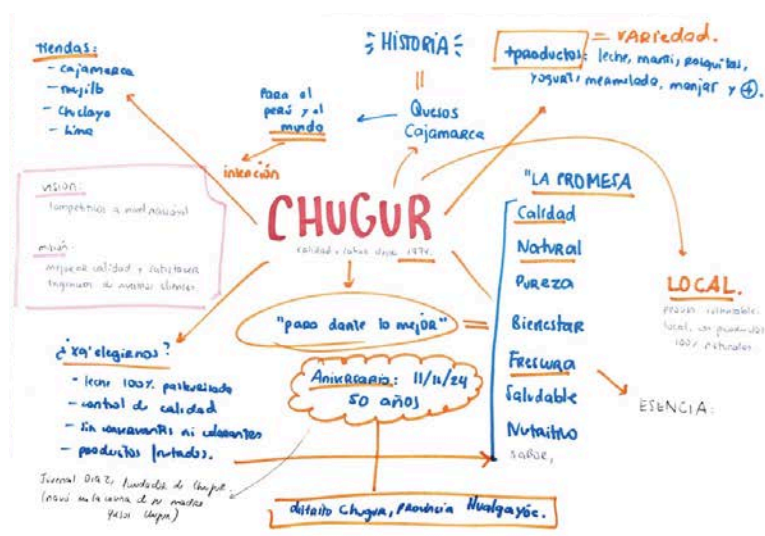 tiendas:
- Cajamarca
- trujillo
- Chiclayo
- Lima
HISTORIA
Quesos
Cajamarca
Para el
perú y el
mundo
intención
= VARIEDAD.
+productos: leche, manti, rosquitas,
yogurt, mermelada, manjar y +.
visión:
Competitivos a nivel nacional
misión:
mejorar calidad y satisfacer
de nuestros clientes.
CHUGUR
calidad y sabor desde 1974.
"para darte lo mejor"
=
"LA PROMESA
Calidad
Natural
Pureza
Bienestar
Frescura
Saludable
Nutritivo
sabor,
LOCAL.
local, con productos
100% naturales.
ESENCIA:
¿xq' elegirnos?
- leche 100% pasteurizada
- control de calidad
- sin conservantes ni colorantes
- productos frutados.
Aniversario: 11/11/24
50 años
Juvenal Díaz, fundador de Chugur.
(nació en la cocina de mi madre
distrito Chugur, Provincia Hualgayóc.